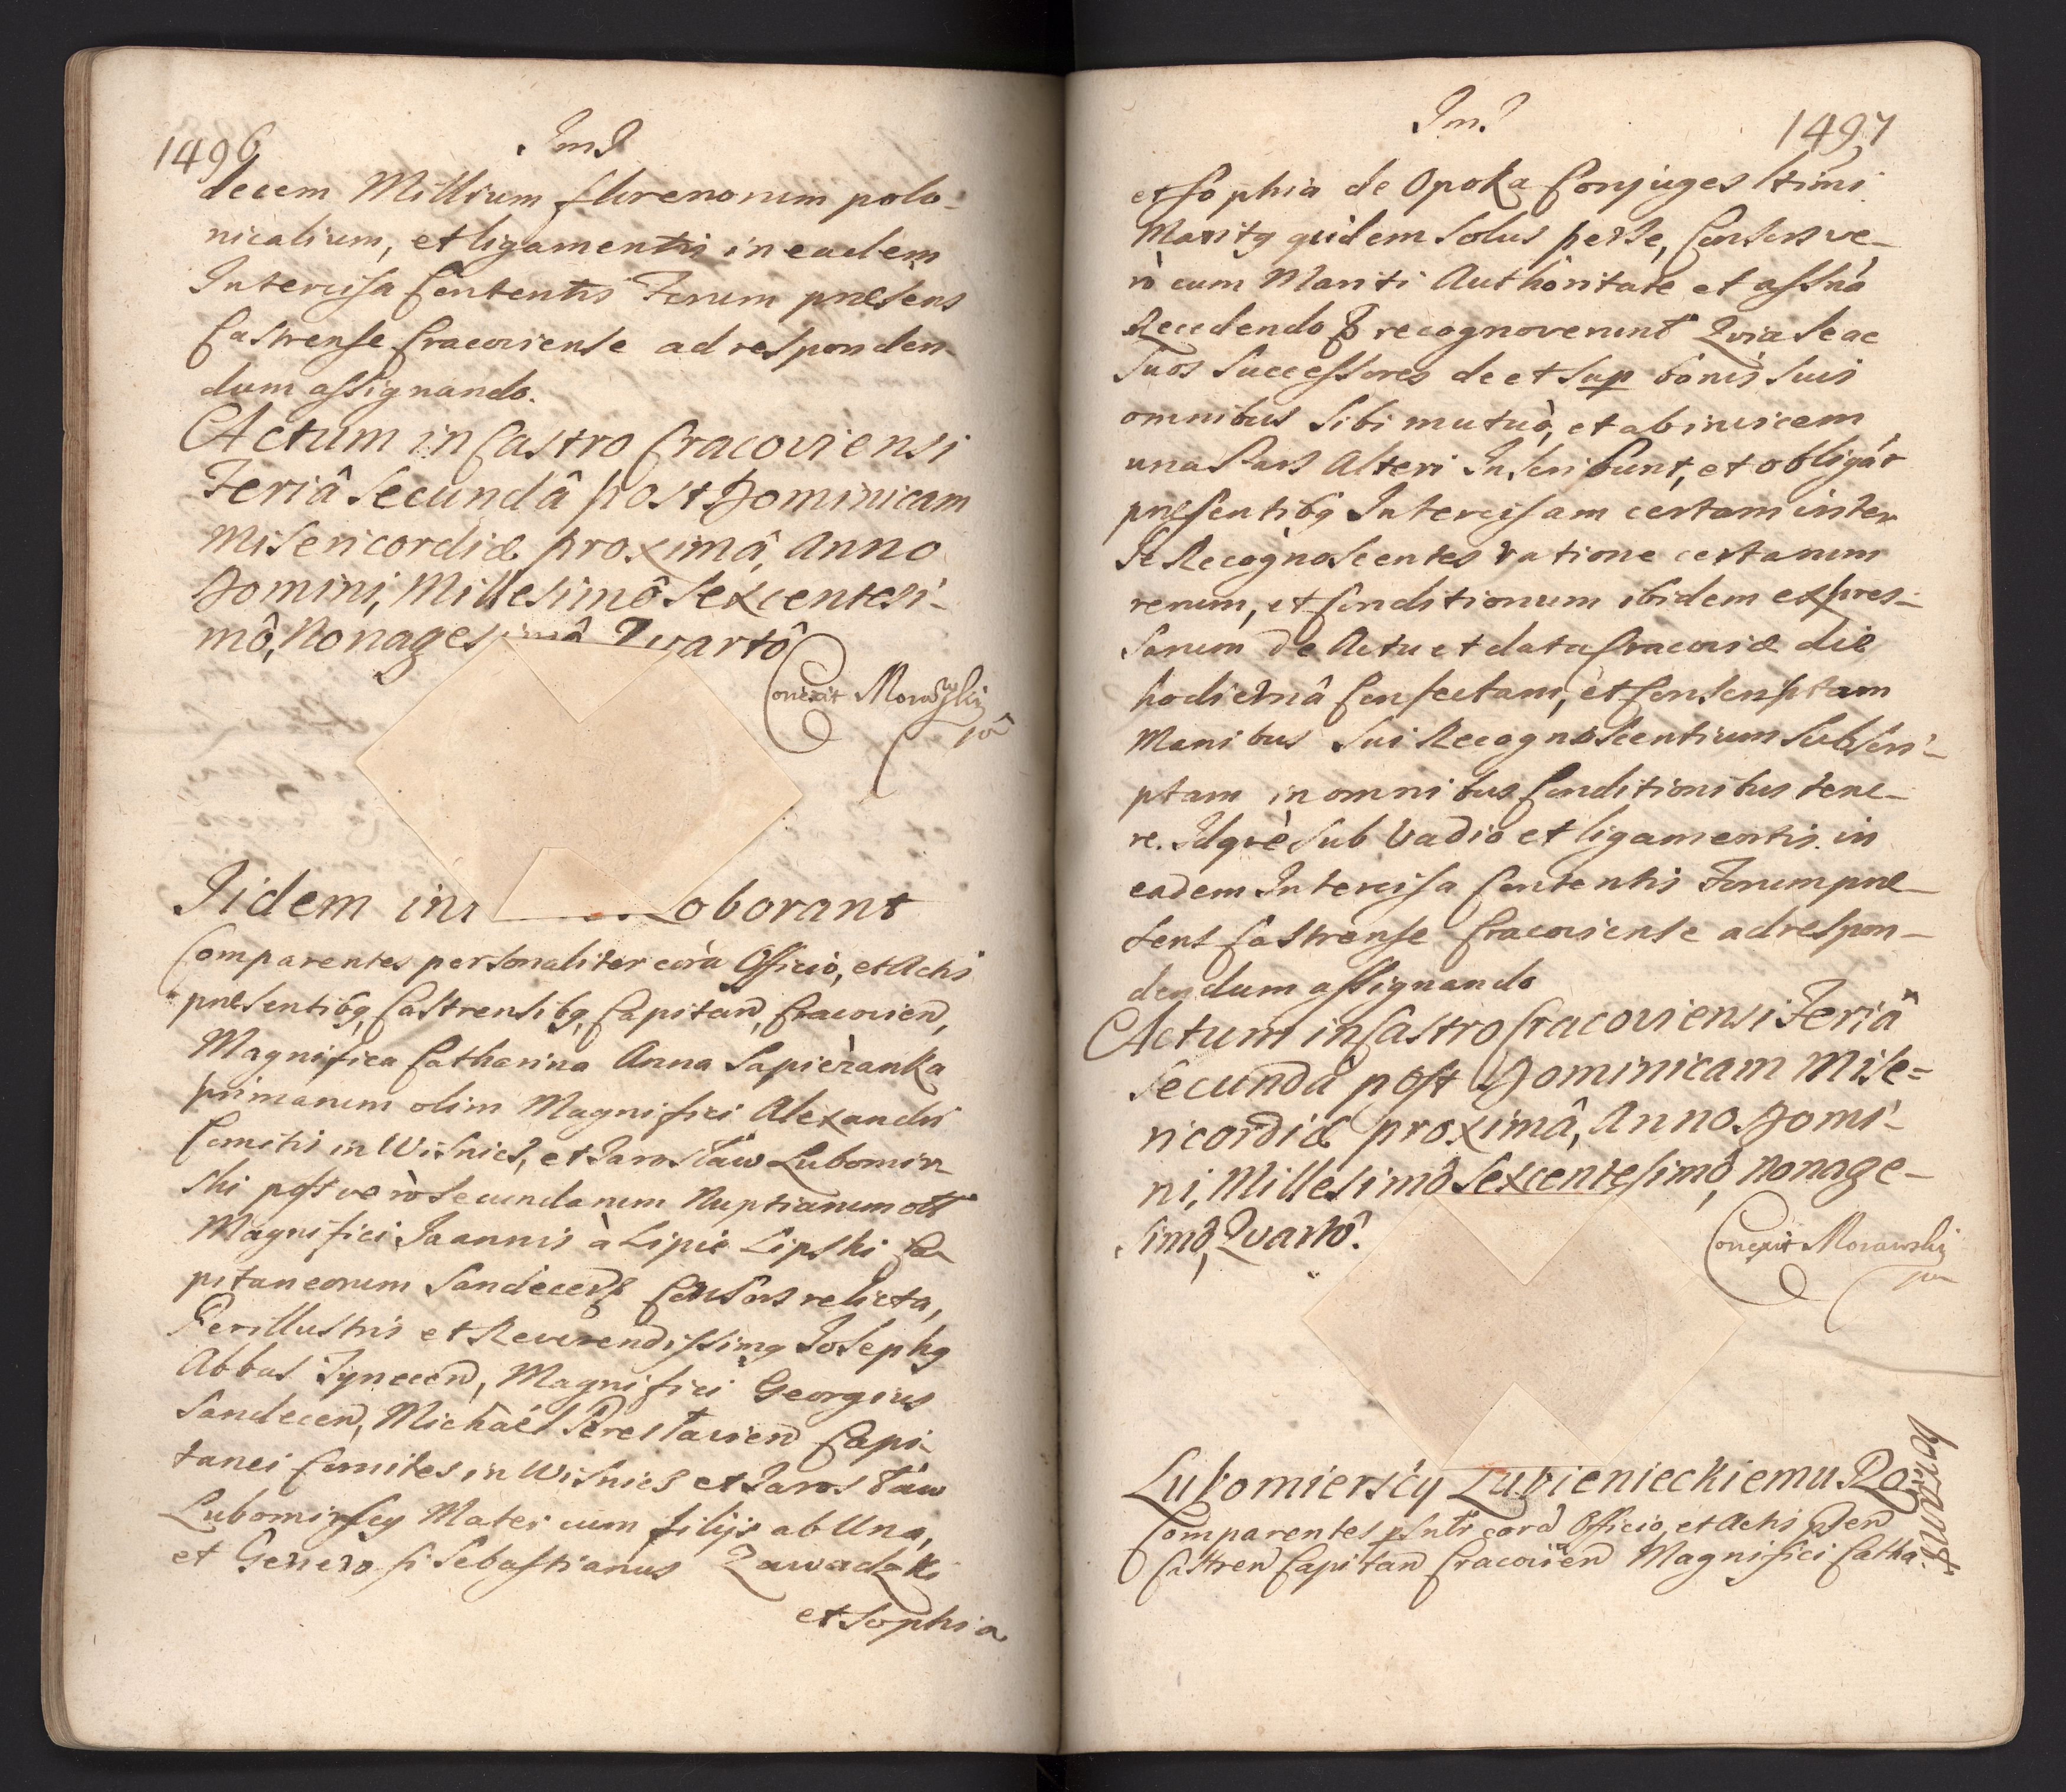 1496
decem Millium flórenorum polo-
nicalium, et ligamentis in eadem
Intercisa Contentis Forum præsens
Castrense Cracoviense ad responden-
dum assignando.
Actum in Castro Cracoviensi
Feriâ Secundâ post Dominicam
Misericordiæ proximâ, Anno
Domini, Millesimô Sexcentesi-
mô, Nonagesimô Quartô
Conexit Morawski
Iidem in Roborant
Comparentes personaliter corà Officio, et Actis
præsentibq, Castrensibq, Capitan, Cracovien,
Magnifica Catharina Anna Sapieżanka
primarum olim Magnifici Alexandri
Comitis in Wisnicz, et Jarosław Lubomir
ski post verò Secundarum Nuptiarum
Magnifici Joannis à Lipie Lipski Ca
pitaneorum Sandecen Consors relicta,
Perillustris et Reverendissimq Josephq
Abbas Tynecen, Magnifici Georgius
Sandecen, Michaël Perestavien Capi-
tanei Comites in Wisnicz et Jarosław
Lubomirscy Mater cum filijs ab Una,
et Generosi Sebastianus Zawadzki
et Sophia
1497
et Sophia de Opoka Conjuges ltimi
Maritq quidem Solus per se, Consors ve-
rò cum Mariti Authoritate et assña
Recedendo recognoverunt Quia Se ac
Suos Successores de et sup bonis Suis
omnibus Sibi mutuò, et ab invicem
una Pars Alteri Inscribunt, et obligát
præsentibq Intercisam certam inter
Se Recognoscentes ratione certarum
rerum, et Conditionum ibidem expres-
sarum de Actu et data Cracoviæ die
hodiernâ Confectam, et Conscriptam
Manibus Sui Recognoscentium Subscri-
ptam in omnibus Conditionibus tene-
re. Idqvè Sub Vadio et ligamentis in
eadem Intercisa Contentis Forum præ-
sens Castrense Cracoviense ad respon-
dendum assignando
Actum in Castro Cracoviensi Feriâ
Secundâ post Dominicam Mise-
ricordiæ proximâ, Anno Domi-
ni, Millesimô Sexcentesimô, Nonage-
simô, Quartô.
Conexit Morawski
Lubomierscy Lubienieckiemu Ro-
borant
Comparentes corà Officio, et Actis
Castren Capitan Cracovien Magnifici Catha-